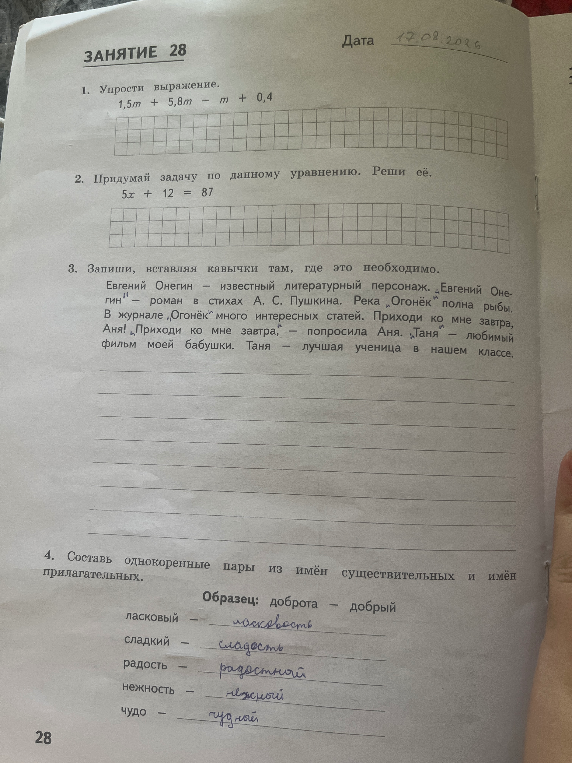 ЗАНЯТИЕ 28
Дата 17.08.2026
1. Упрости выражение.
1,5m + 5,8m − m + 0,4
2. Придумай задачу по данному уравнению. Реши её.
5x + 12 = 87
3. Запиши, вставляя кавычки там, где это необходимо.
Евгений Онегин — известный литературный персонаж. „Евгений Оне-
гин" — роман в стихах А. С. Пушкина. Река „Огонёк" полна рыбы.
В журнале „Огонёк" много интересных статей. Приходи ко мне завтра,
Аня! „Приходи ко мне завтра," — попросила Аня. „Таня" — любимый
фильм моей бабушки. Таня — лучшая ученица в нашем классе.
4. Составь однокоренные пары из имён существительных и имён
прилагательных.
Образец: доброта — добрый
ласковый — ласковость
сладкий — сладость
радость — радостный
нежность — нежный
чудо — чудный
28